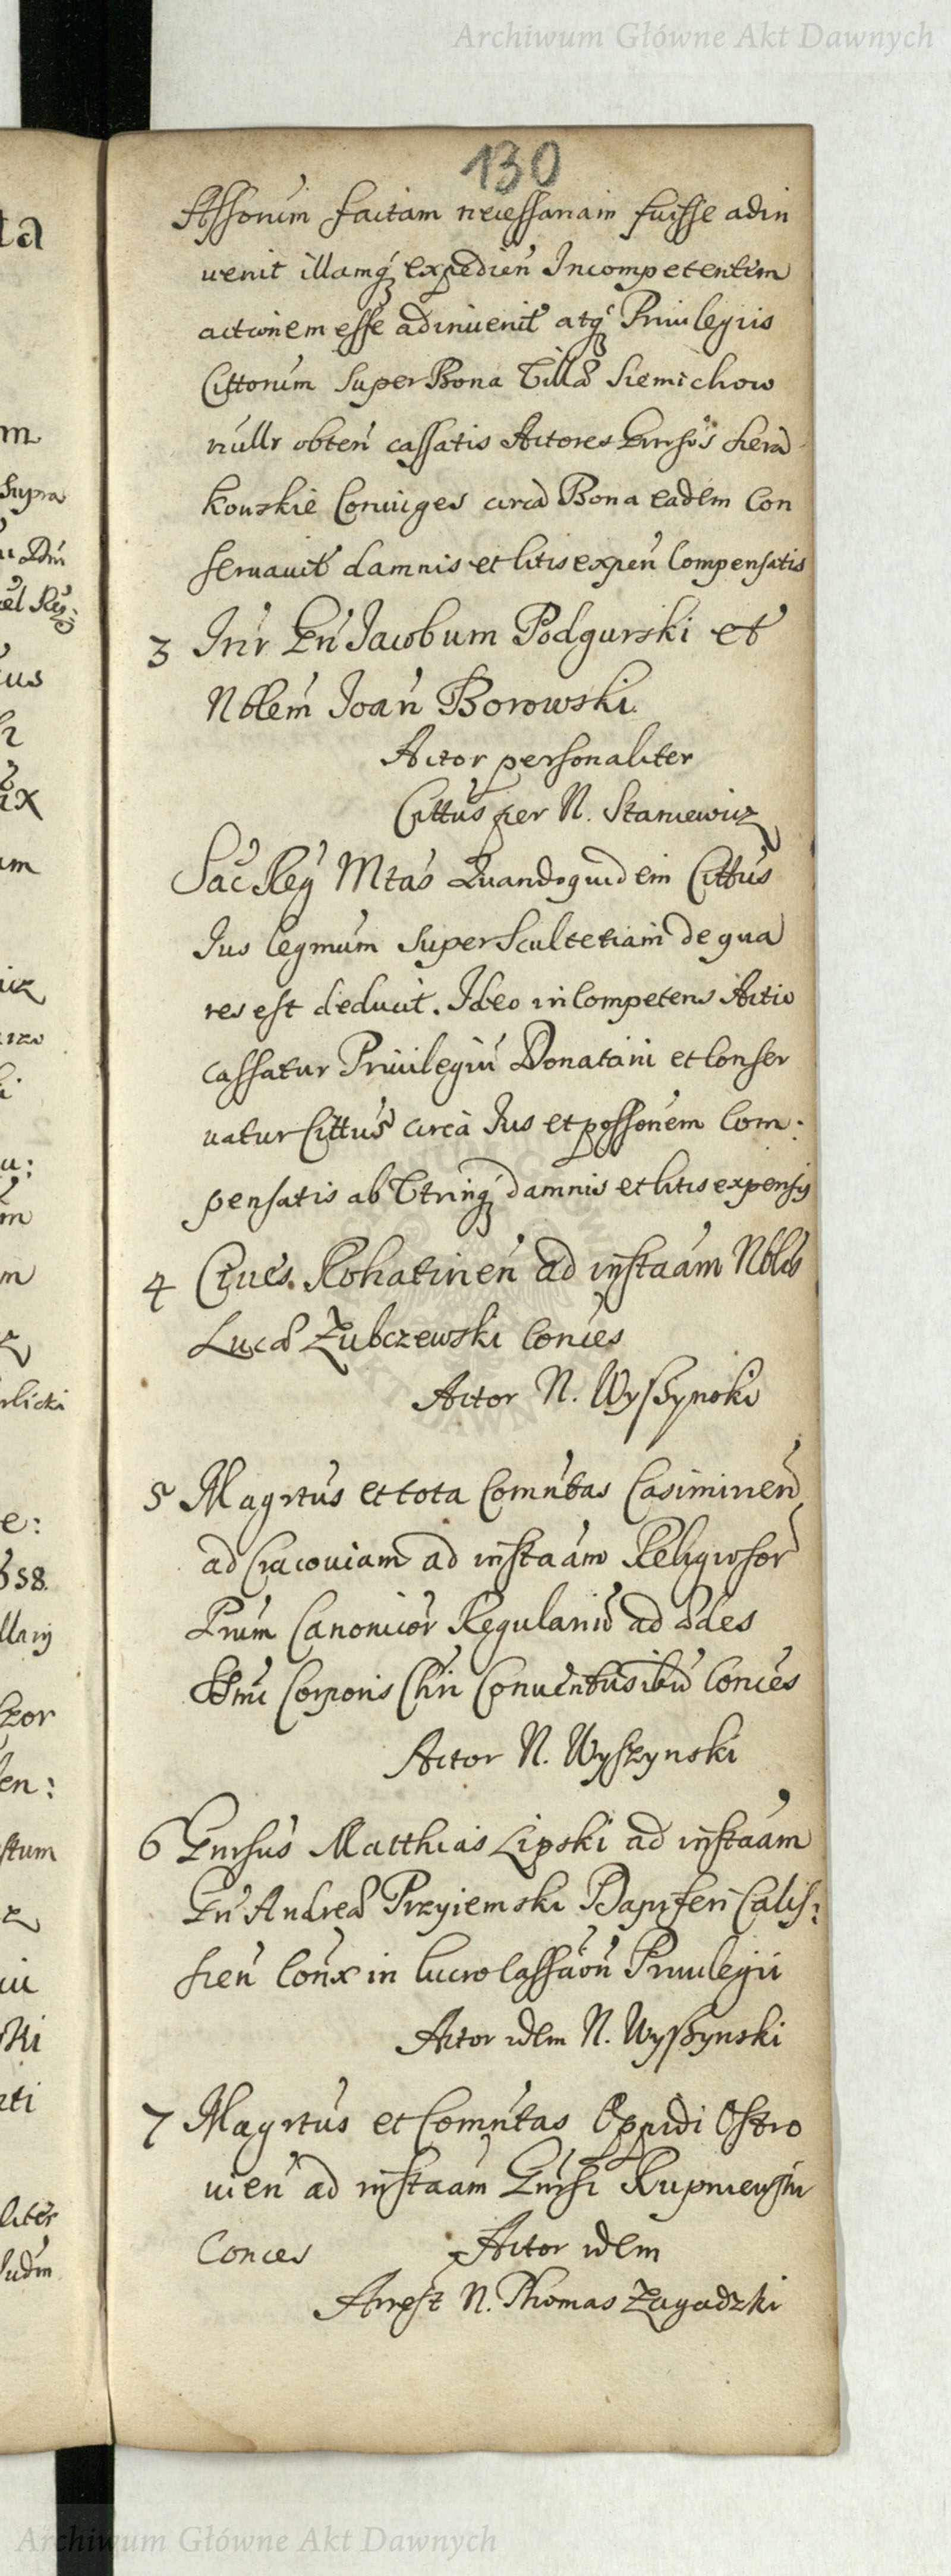 Archiwum Główne Akt Dawnych
130
Assorum factam necessariam fuisse adin
uenit illamq́ expedień Incompetentem
actionem esse adinuenit atq́ Priuilegiis
Cittorum super Bona Villa Siemichow
nullr obteń cassatis Actores Gnrsos Siera
kouskie Coniuges circa Bona eadem Con
seruauit damnis et litis expeń Compensatis
3 Intr Gń Jacobum Podgurski et
Nblem Joań Borowski
Actor personaliter
Cittus per N. Staniewicz
Sac Reg Mtas Quandoquidem Cittus
Jus legmum super Scultetiam de qua
res est deduxit. Ideo incompetens Actio
cassatur Priuilegiu Donatarii et Conser
uatur Cittus circa Jus et possonem Com:
pensatis ab Vtrinq́ damnis et litis expensis
4 Ciues Rohatineń ad instaam Nblis
Luca Zubczewski Conces
Actor N. Wyszynski
5 Magrtus et tota Comntas Casimirień
ad Cracouiam ad instaam Religiosor
Prum Canonicor Regulariu ad Ædes
SSmi Corporis Chri Conuentus ibid Conces
Actor N. Wyszynski
6 Gnrsus Matthias Lipski ad instaam
Gń Andrea Przyiemski Dapiferi Calis:
sień Conx in lucro Cassaoń Priuilegii
Actor idem N. Wyszynski
7 Magrtus et Comntas Oppidi Ostro
uień ad instaam Gnrsi Rupniewski
Conces Actor idem
Arrest N. Thomas Zagadzki
ta
m
supra
Dm
el Reg:
us
ix
um
e:
658.
zor
en:
stum
ski
liter
Archiwum Główne Akt Dawnych